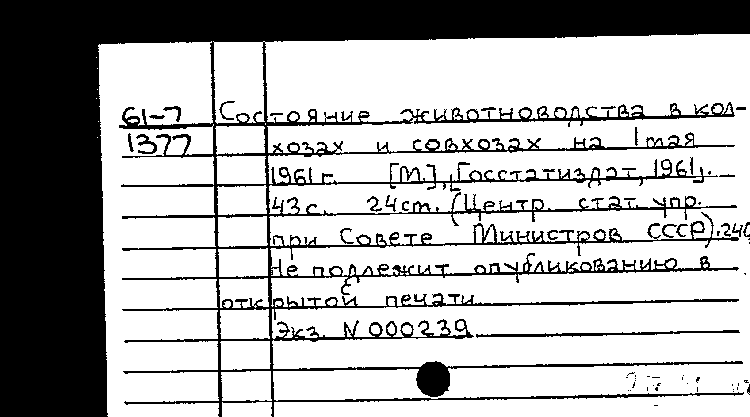 61-7 Состояние животноводства в кол-
1377 хозах и совхозах на 1 мая
1961 г. [М.], [Госстатиздат, 1961].
43 с. 24 ст. (Центр. стат. упр.
при Совете Министров СССР). 240
Не подлежит опубликованию в
открытой печати
Экз. N 000239